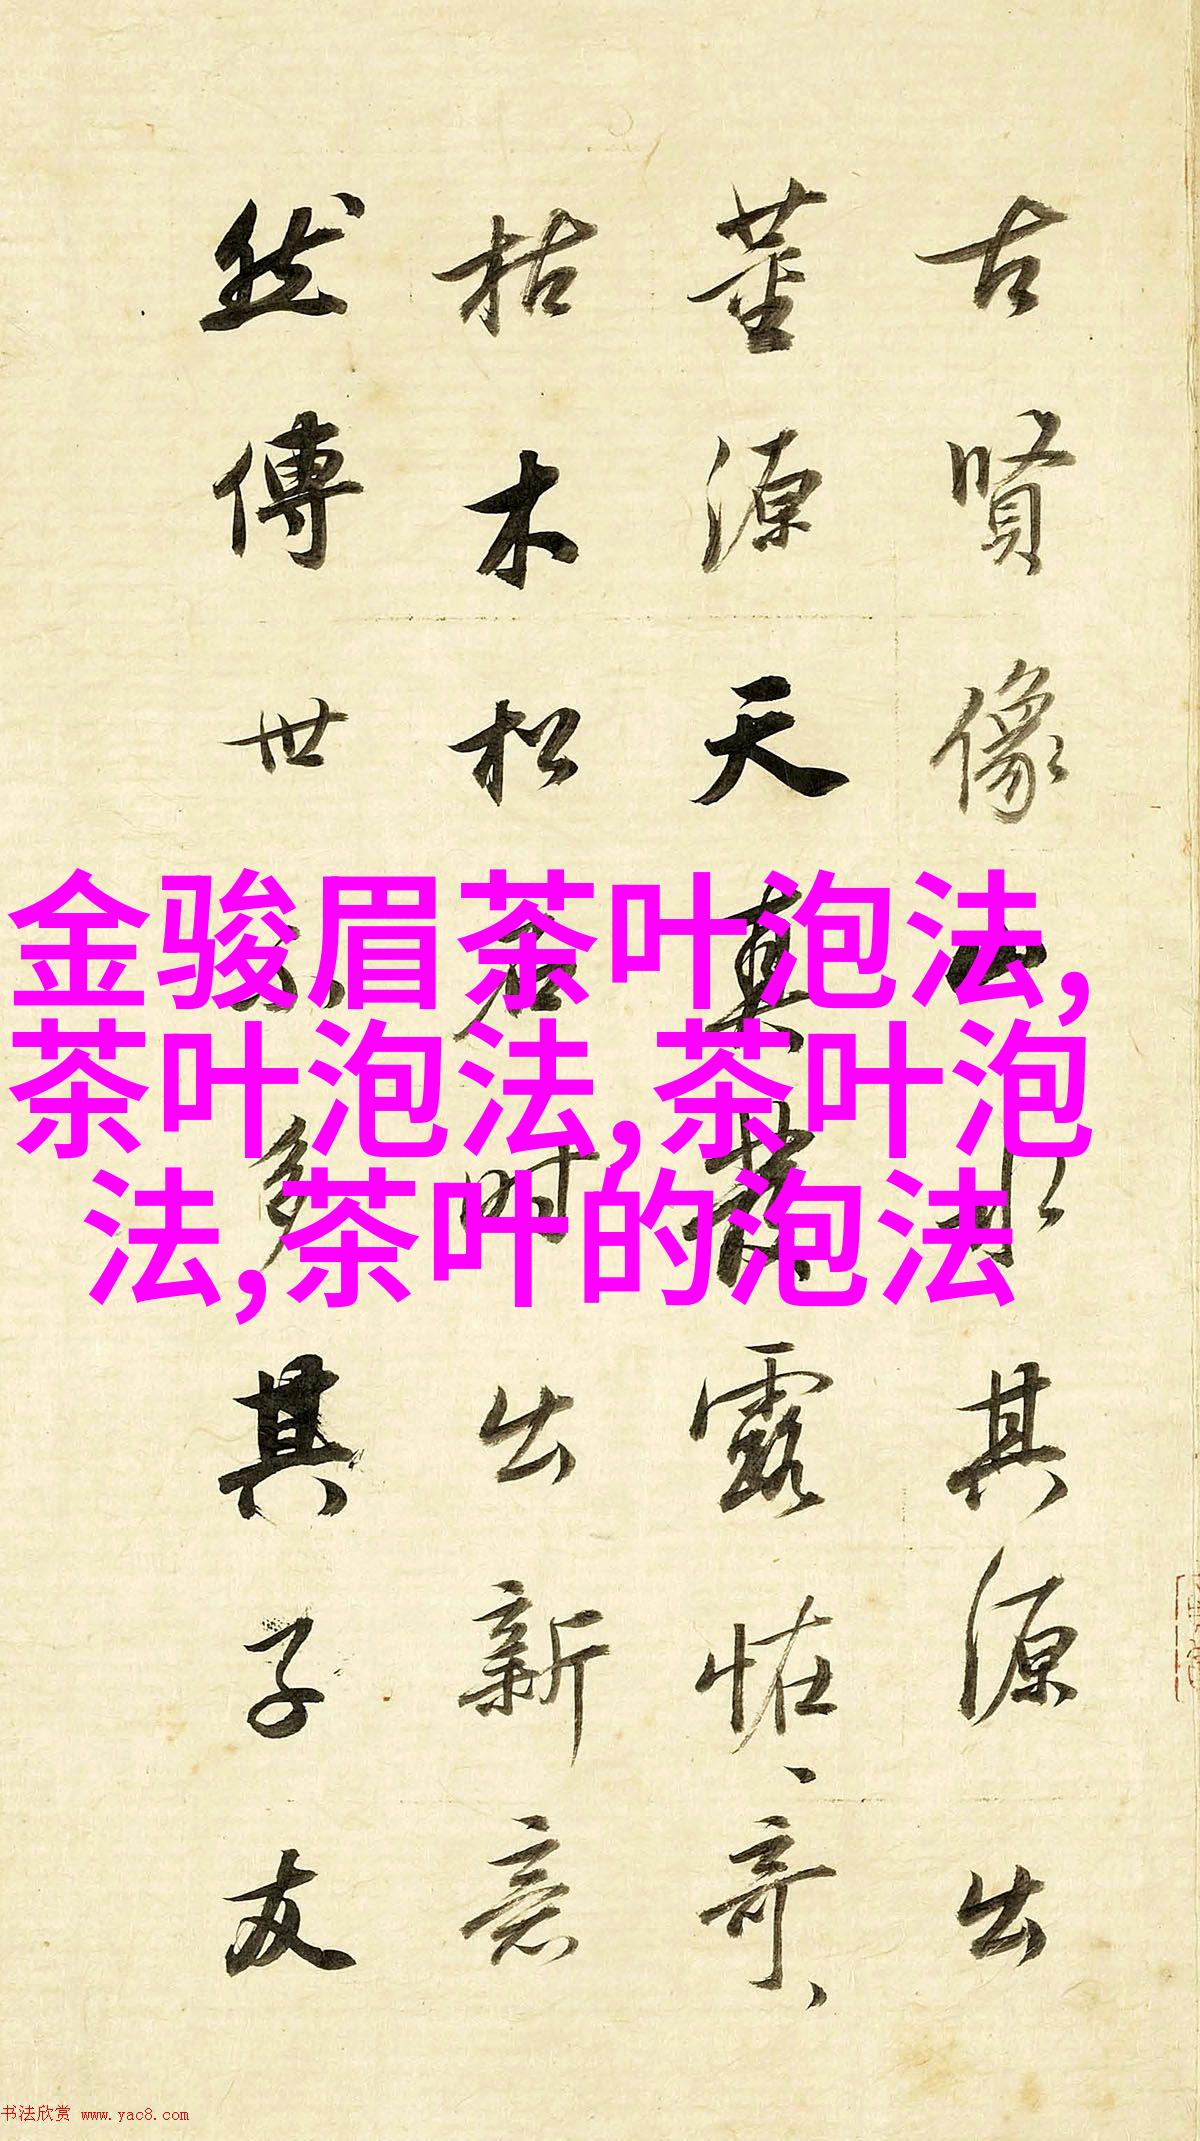 古賢像山水其源出
董源天真發露恠、奇、
枯木松石時出新意
然傳世不多其子友
金骏眉茶叶泡法,
茶叶泡法,茶叶泡
法,茶叶的泡法
书法欣赏 www.yac8.com